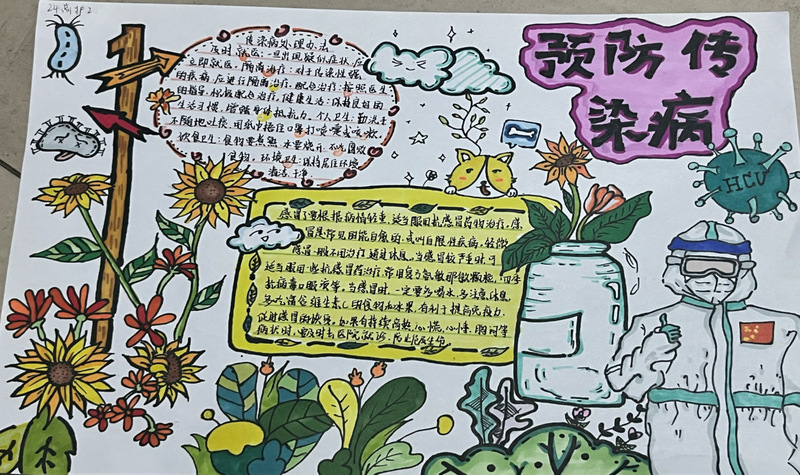 24高护2
预防传
染病
HCV
传染病处理办法
及时就医:一旦出现疑似症状,应
立即就医。隔离治疗:对于传染性强
的疾病,应进行隔离治疗。配合治疗:按照医生
的指导,积极配合治疗,健康生活:保持良好的
生活习惯,增强身体抵抗力。个人卫生:勤洗手
不随地吐痰,用纸巾捂住口鼻打喷嚏或咳嗽。
饮食卫生:食物要煮熟,水要烧开,不吃腐败
食物。环境卫生:保持居住环境
清洁、干净
感冒了要根据病情轻重,适当服用抗感冒药物治疗,感
冒是常见的能自愈的,或叫自限性疾病,轻微
感冒一般不用治疗,通过休息,当感冒较严重时可
适当服用一些抗感冒药治疗,常用复方氨酚那敏颗粒,
抗病毒口服液等。当感冒时,一定要多喝水,多注意休息,
多吃富含维生素C的食物如水果,有利于提高免疫力,
促进感冒的恢复。如果有持续高热,心慌,心悸,胸闷等
病状时,要及时去医院就诊,